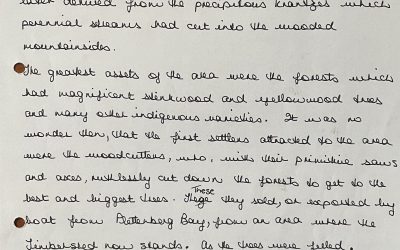 derived from the precipitous krantzes which
perennial streams had cut into the wooded
mountainsides.
The greatest assets of the area were the forests which
had magnificent stinkwood and yellowwood trees
and many other indigenous varieties. It was no
wonder then, that the first settlers attracted to the area
were the woodcutters, who, with their primitive saws
and axes, ruthlessly cut down the forests to get to the
best and biggest trees. These they sold, or exported by
boat from Plettenberg Bay, from an area where the
Timbershed now stands. As the trees were felled,